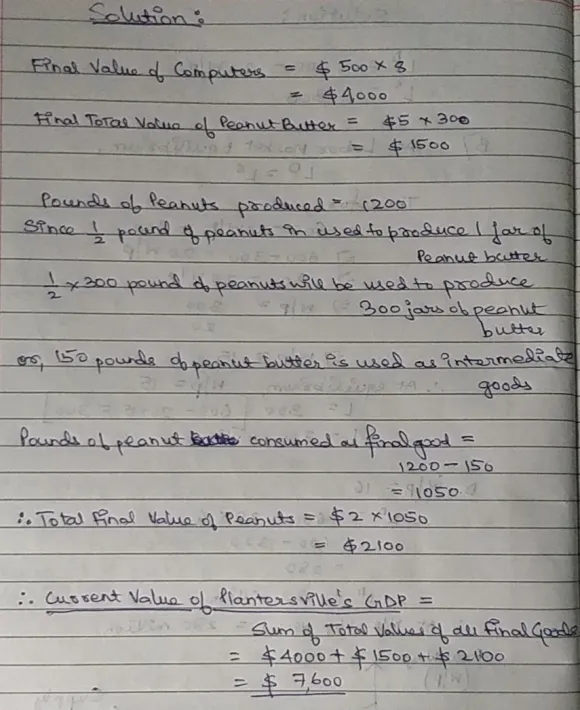 Solution :
Final Value of Computers = $ 500 × 8
= $4000
Final Total Value of Peanut Butter = $5 × 300
= $ 1500
Pounds of Peanuts produced = 1200
Since 1/2 pound of peanuts in used to produce 1 jar of
Peanut butter
1/2 × 300 pound of peanuts will be used to produce
300 jars of peanut
butter
or, 150 pounds of peanut butter is used as intermediate
goods
Pounds of peanut consumed as final good =
1200 - 150
= 1050
∴ Total Final Value of Peanuts = $2 × 1050
= $2100
∴ Current Value of Plantersville's GDP =
Sum of Total Values of all Final Goods
= $4000 + $ 1500 + $ 2100
= $ 7,600